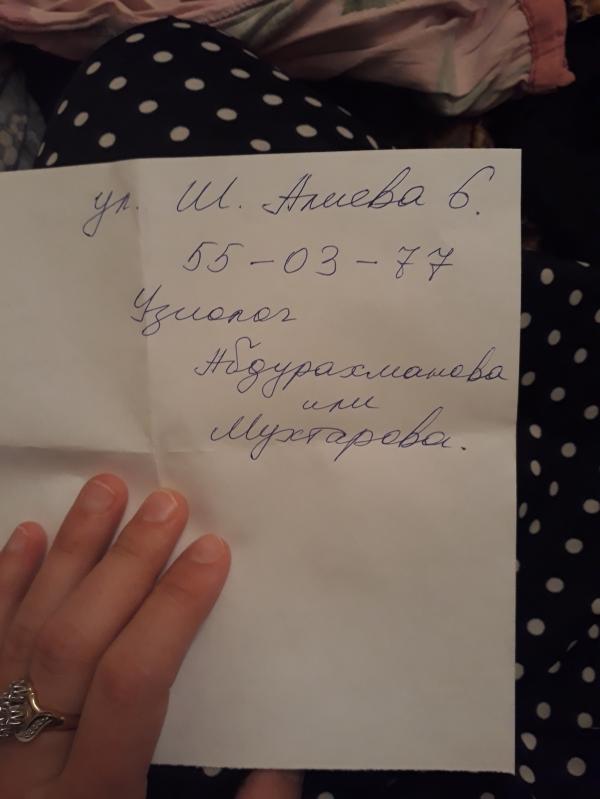 ул. Ш. Алиева 6.
55-03-77
Узиолог
Абдурахманова
или
Мухтарова.